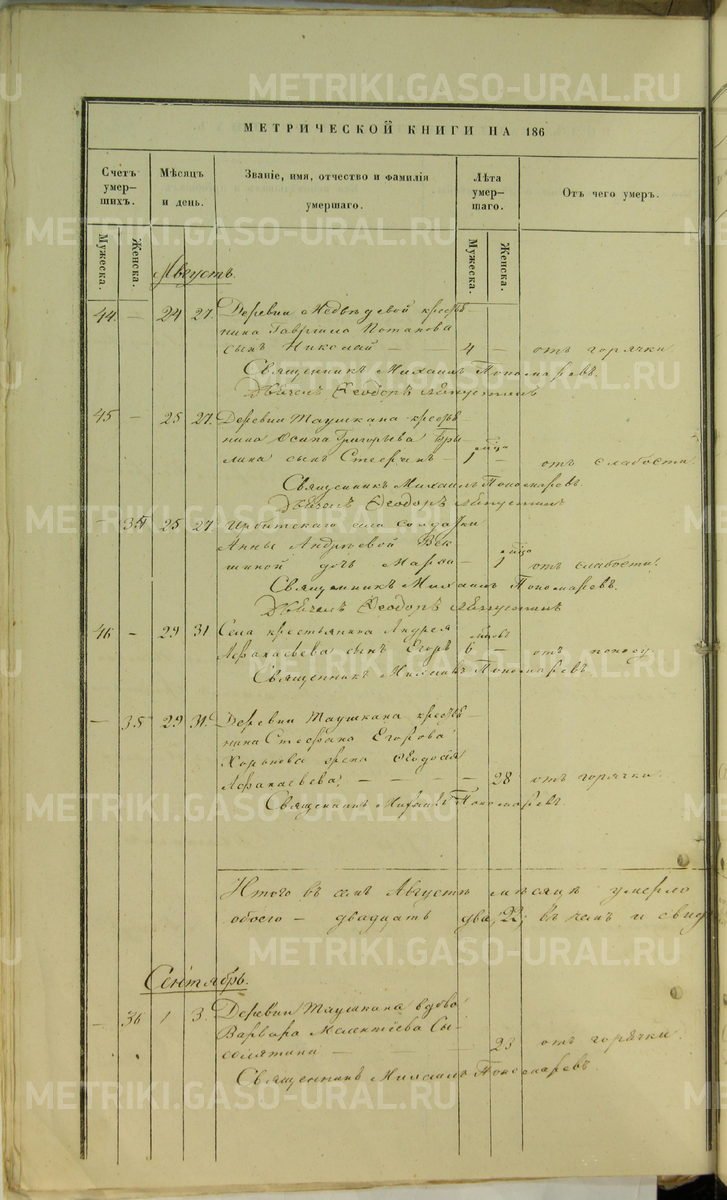 МЕТРИЧЕСКОЙ КНИГИ НА 186
Счетъ умер-шихъ. Мѣсяцъ и день. Званіе, имя, отчество и фамилія умершаго. Лѣта умер-шаго. Отъ чего умеръ.
Мужеска. Женска. Мужеска. Женска.
Августъ.
44. — 24 27. Деревни Медвѣдевой кресть-
нина Гавріила Потапова
сынъ Николай — 4 — отъ горячки
Священникъ Михаилъ Пономаревъ.
Дьячекъ Ѳеодоръ
45 — 25 27. Деревни Таушкана кресть-
нина Осипа Григорьева
сынъ — 1 — отъ слабости
Священникъ Михаилъ Пономаревъ
Дьячекъ Ѳеодоръ
— 34 25 27 Ирбитскаго села солдатки
Анны Андреевой Век-
шиной дочь Марѳа — 1 отъ слабости.
Священникъ Михаилъ Пономаревъ.
Дьячекъ Ѳеодоръ
46 — 29 31 Села крестьянина Андрея
сынъ Егоръ 6 — отъ поносу
Священникъ Михаилъ Пономаревъ
— 35 29 31. Деревни Таушкана кресть-
нина Стефана Егорова
жена Ѳеодосія
— — — — 28 отъ горячки.
Священникъ Михаилъ Пономаревъ.
Итого въ семъ Августѣ мѣсяцѣ умерло
обоего — двадцать два, 22; въ чемъ и свид
Сентябрь.
— 36 1 3. Деревни Таушкана вдова
Варвара Мелентіева Сы-
солятина — 23 отъ горячки.
Священникъ Михаилъ Пономаревъ.
METRIKI.GASO-URAL.RU